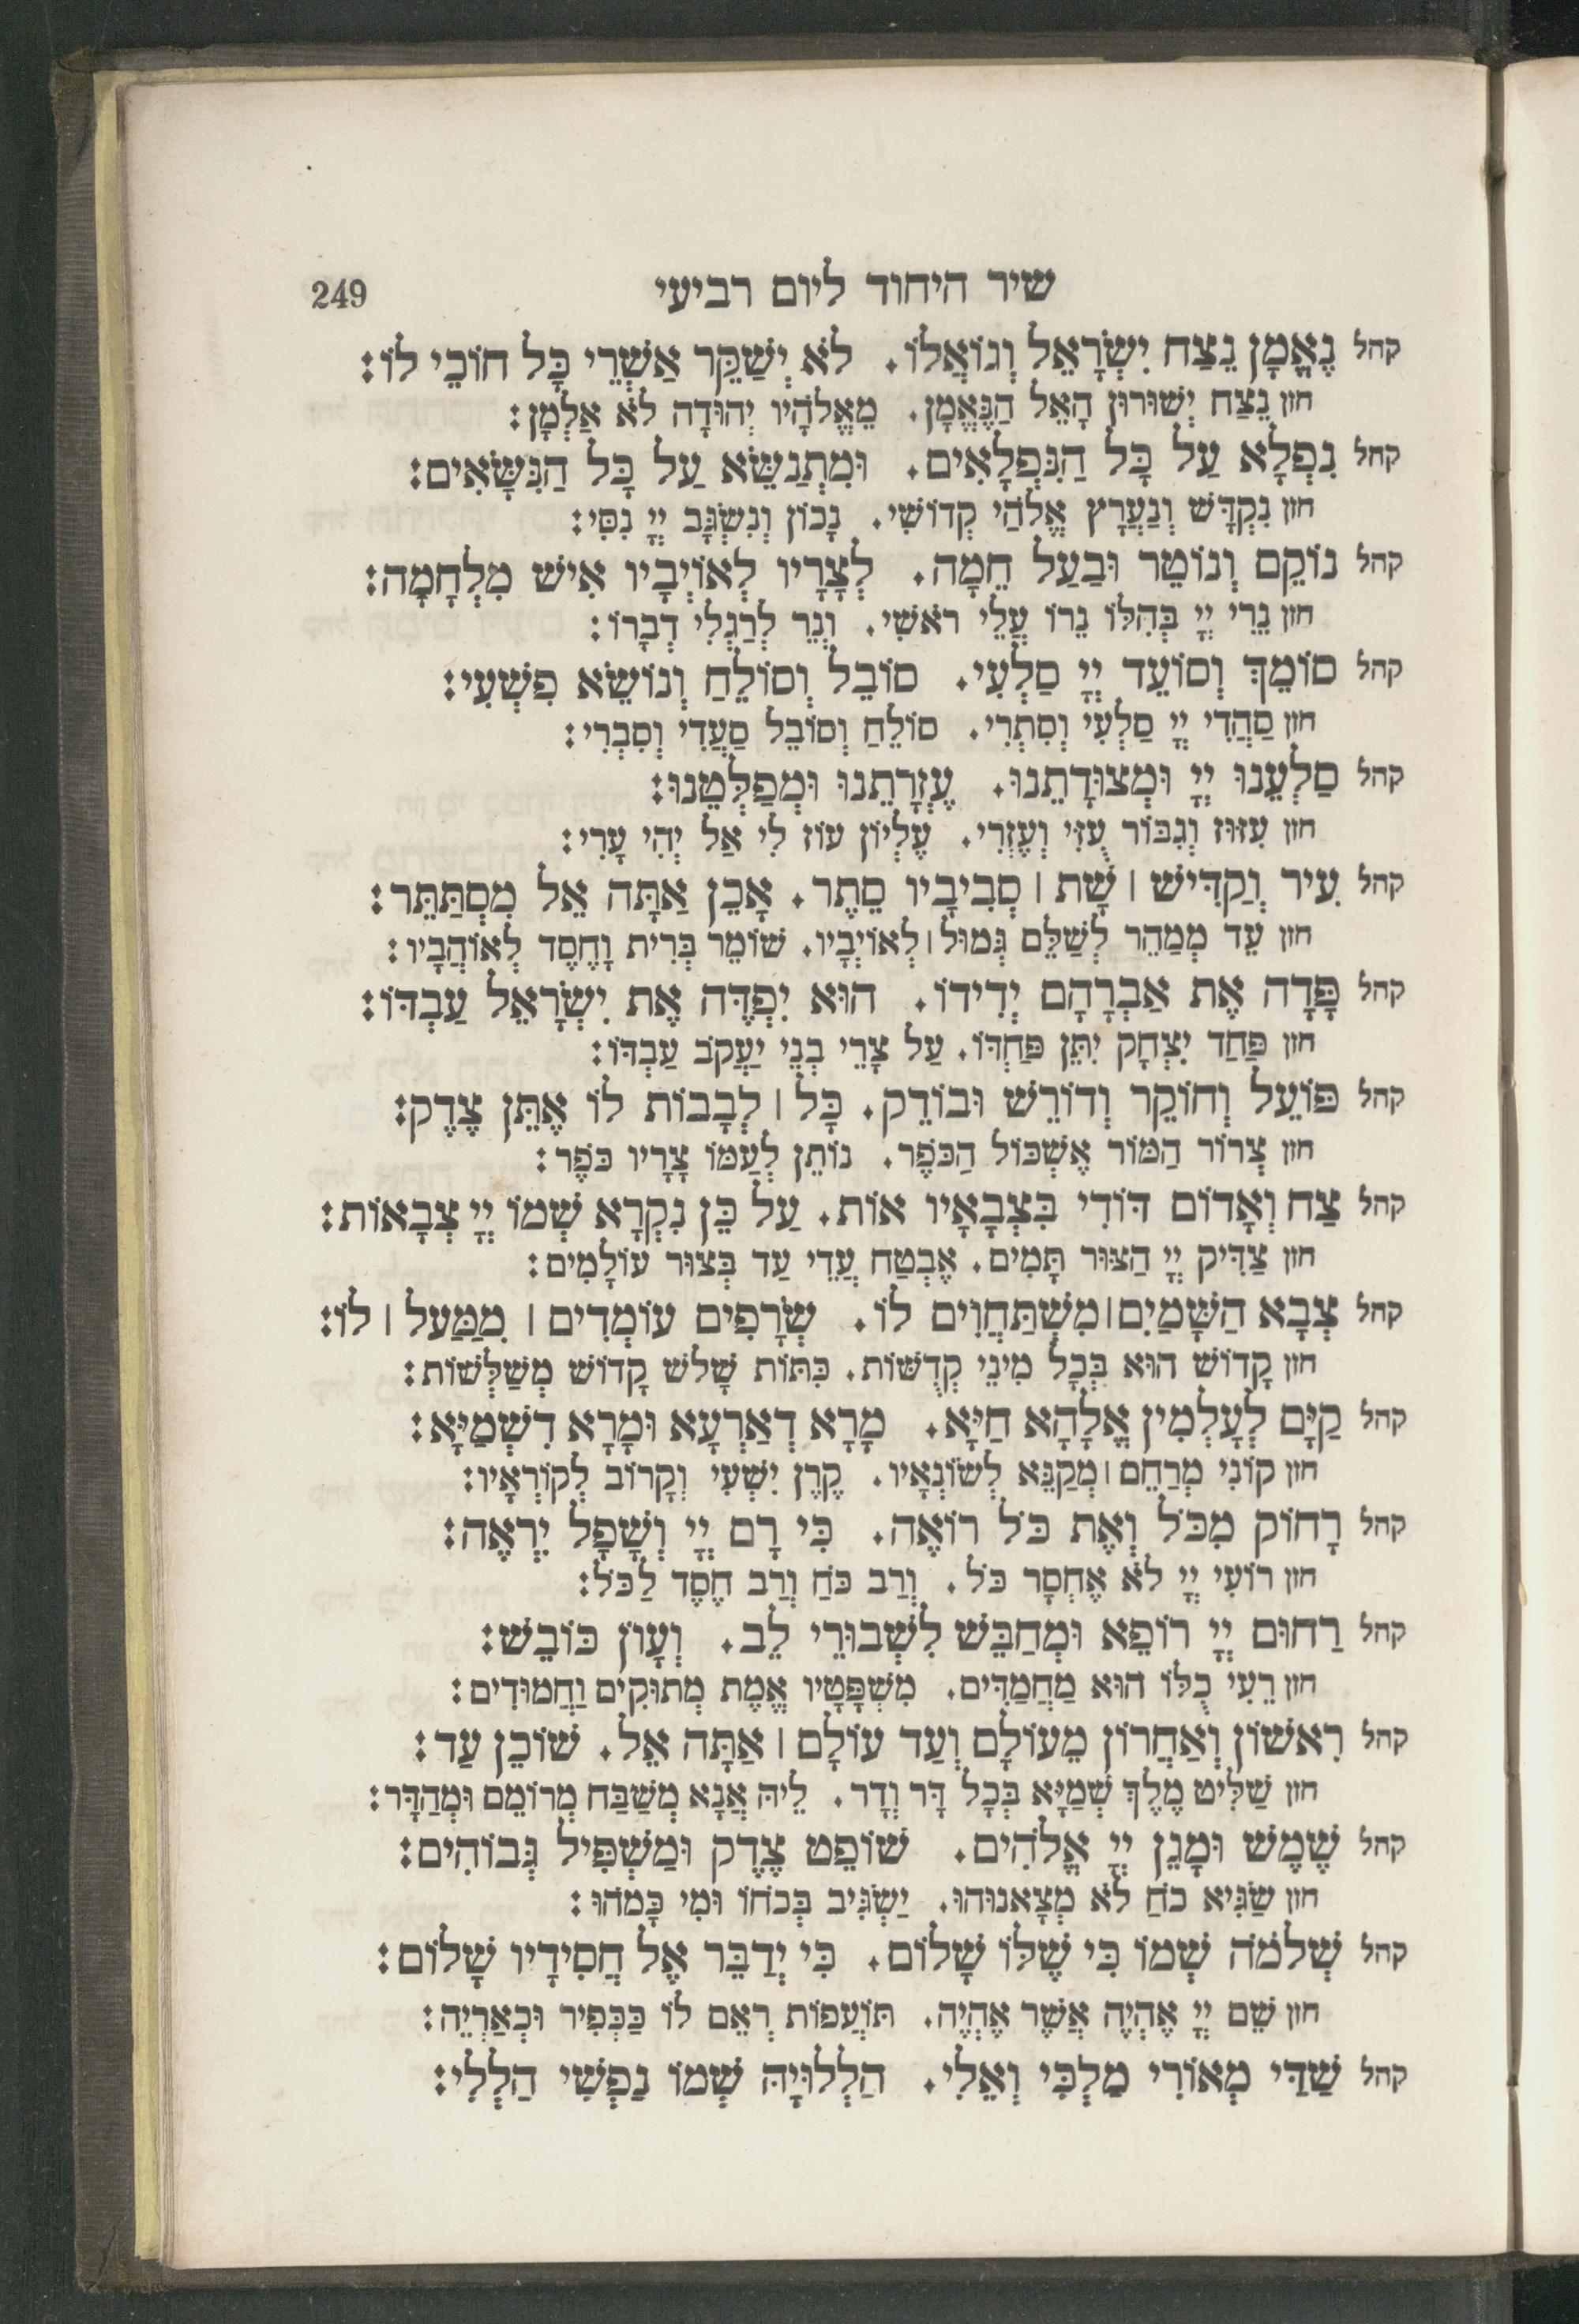 שיר היחוד ליום רביעי 249
קהל נֶאֱמָן נֵצַח יִשְׂרָאֵל וְגוֹאֲלוֹ. לֹא יְשַׁקֵּר אַשְׁרֵי כָּל חוֹכֵי לוֹ:
חזן נֵצַח יְשׁוּרוּן הָאֵל הַנֶּאֱמָן. מֵאֱלֹהָיו יְהוּדָה לֹא אַלְמָן:
קהל נִפְלָא עַל כָּל הַנִּפְלָאִים. וּמִתְנַשֵּׂא עַל כָּל הַנִּשָּׂאִים:
חזן נִקְדָּשׁ וְנַעֲרָץ אֱלֹהַי קְדוֹשִׁי. נָכוֹן וְנִשְׂגָּב יְיָ נִסִּי:
קהל נוֹקֵם וְנוֹטֵר וּבַעַל חֵמָה. לְצָרָיו לְאוֹיְבָיו אִישׁ מִלְחָמָה:
חזן נֵרִי יְיָ בְּהִלּוֹ נֵרוֹ עֲלֵי רֹאשִׁי. וְנֵר לְרַגְלִי דְבָרוֹ:
קהל סוֹמֵךְ וְסוֹעֵד יְיָ סַלְעִי. סוֹבֵל וְסוֹלֵחַ וְנוֹשֵׂא פִשְׁעִי:
חזן סַהֲדִי יְיָ סַלְעִי וְסִתְרִי. סוֹלֵחַ וְסוֹבֵל סַעֲדִי וְסִבְרִי:
קהל סַלְעֵנוּ יְיָ וּמְצוּדָתֵנוּ. עֶזְרָתֵנוּ וּמְפַלְּטֵנוּ:
חזן עִזּוּז וְגִבּוֹר עֻזִּי וְעֶזְרִי. עֶלְיוֹן עוֹז לִי אַל יְהִי עָרִי:
קהל עִיר וְקַדִּישׁ ׀ שָׁת ׀ סְבִיבָיו סֵתֶר. אָכֵן אַתָּה אֵל מִסְתַּתֵּר:
חזן עֵד מְמַהֵר לְשַׁלֵּם גְּמוּל׀ לְאוֹיְבָיו. שׁוֹמֵר בְּרִית וָחֶסֶד לְאוֹהֲבָיו:
קהל פָּדָה אֶת אַבְרָהָם יְדִידוֹ. הוּא יִפְדֶּה אֶת יִשְׂרָאֵל עַבְדּוֹ:
חזן פַּחַד יִצְחָק יִתֵּן פַּחְדּוֹ. עַל צָרֵי בְנֵי יַעֲקֹב עַבְדּוֹ:
קהל פּוֹעֵל וְחוֹקֵר וְדוֹרֵשׁ וּבוֹדֵק. כָּל ׀ לְבָבוֹת לוֹ אֶתֵּן צֶדֶק:
חזן צְרוֹר הַמּוֹר אֶשְׁכּוֹל הַכֹּפֶר. נוֹתֵן לְעַמּוֹ צָרָיו כֹּפֶר:
קהל צַח וְאָדוֹם דּוֹדִי בִּצְבָאָיו אוֹת. עַל כֵּן נִקְרָא שְׁמוֹ יְיָ צְבָאוֹת:
חזן צַדִּיק יְיָ הַצּוּר תָּמִים. אֶבְטַח עֲדֵי עַד בְּצוּר עוֹלָמִים:
קהל צְבָא הַשָּׁמַיִם׀ מִשְׁתַּחֲוִים לוֹ. שְׂרָפִים עוֹמְדִים ׀ מִמַּעַל ׀ לוֹ:
חזן קָדוֹשׁ הוּא בְּכָל מִינֵי קְדֻשּׁוֹת. כִּתּוֹת שָׁלֹשׁ קָדוֹשׁ מְשַׁלְּשׁוֹת:
קהל קַיָּם לְעָלְמִין אֱלָהָא חַיָּא. מָרָא דְאַרְעָא וּמָרָא דִשְׁמַיָּא:
חזן קוֹנִי מְרַחֵם ׀ מְקַנֵּא לְשׂוֹנְאָיו. קֶרֶן יִשְׁעִי וְקָרוֹב לְקוֹרְאָיו:
קהל רָחוֹק מִכֹּל וְאֶת כֹּל רוֹאֶה. כִּי רָם יְיָ וְשָׁפָל יִרְאֶה:
חזן רוֹעִי יְיָ לֹא אֶחְסָר כֹּל. וְרַב כֹּחַ וְרַב חֶסֶד לַכֹּל:
קהל רַחוּם יְיָ רוֹפֵא וּמְחַבֵּשׁ לִשְׁבוּרֵי לֵב. וְעָוֹן כּוֹבֵשׁ:
חזן רֵעִי כֻלּוֹ הוּא מַחֲמַדִּים. מִשְׁפָּטָיו אֱמֶת מְתוּקִים וַחֲמוּדִים:
קהל רִאשׁוֹן וְאַחֲרוֹן מֵעוֹלָם וְעַד עוֹלָם ׀ אַתָּה אֵל. שׁוֹכֵן עַד:
חזן שַׁלִּיט מֶלֶךְ שְׁמַיָּא בְּכָל דָּר וְדָר. לֵיהּ אֲנָא מְשַׁבַּח מְרוֹמֵם וּמְהַדָּר:
קהל שֶׁמֶשׁ וּמָגֵן יְיָ אֱלֹהִים. שׁוֹפֵט צֶדֶק וּמַשְׁפִּיל גְּבוֹהִים:
חזן שַׂגִּיא כֹחַ לֹא מְצָאנוּהוּ. יַשְׂגִּיב בְּכֹחוֹ וּמִי כָּמֹהוּ:
קהל שְׁלֹמֹה שְׁמוֹ כִּי שֶׁלּוֹ שָׁלוֹם. כִּי יְדַבֵּר אֶל חֲסִידָיו שָׁלוֹם:
חזן שֵׁם יְיָ אֶהְיֶה אֲשֶׁר אֶהְיֶה. תּוֹעֲפוֹת רְאֵם לוֹ כַּכְּפִיר וּכְאַרְיֵה:
קהל שַׁדַּי מְאוֹרִי מַלְכִּי וְאֵלִי. הַלְלוּיָהּ שְׁמוֹ נַפְשִׁי הַלְלִי: